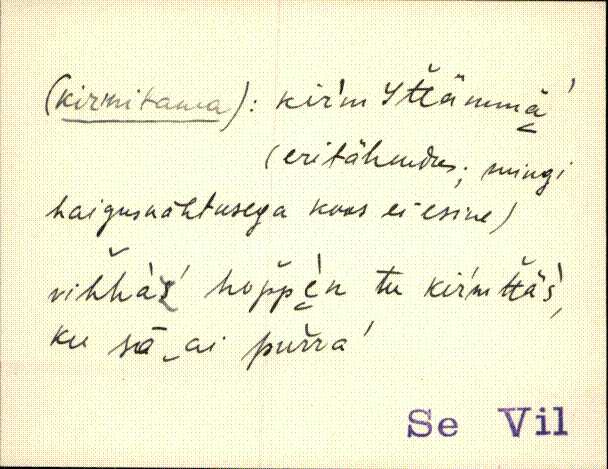 (kirmitama): kiŕm yťťämmä̬'
(eritähendus; mingi
haigusnähtusega koos ei esine)
vihȟàś' hop̌pè̬n tu kiŕmťťäś',
ku sā‿ai puřra'
Se Vil